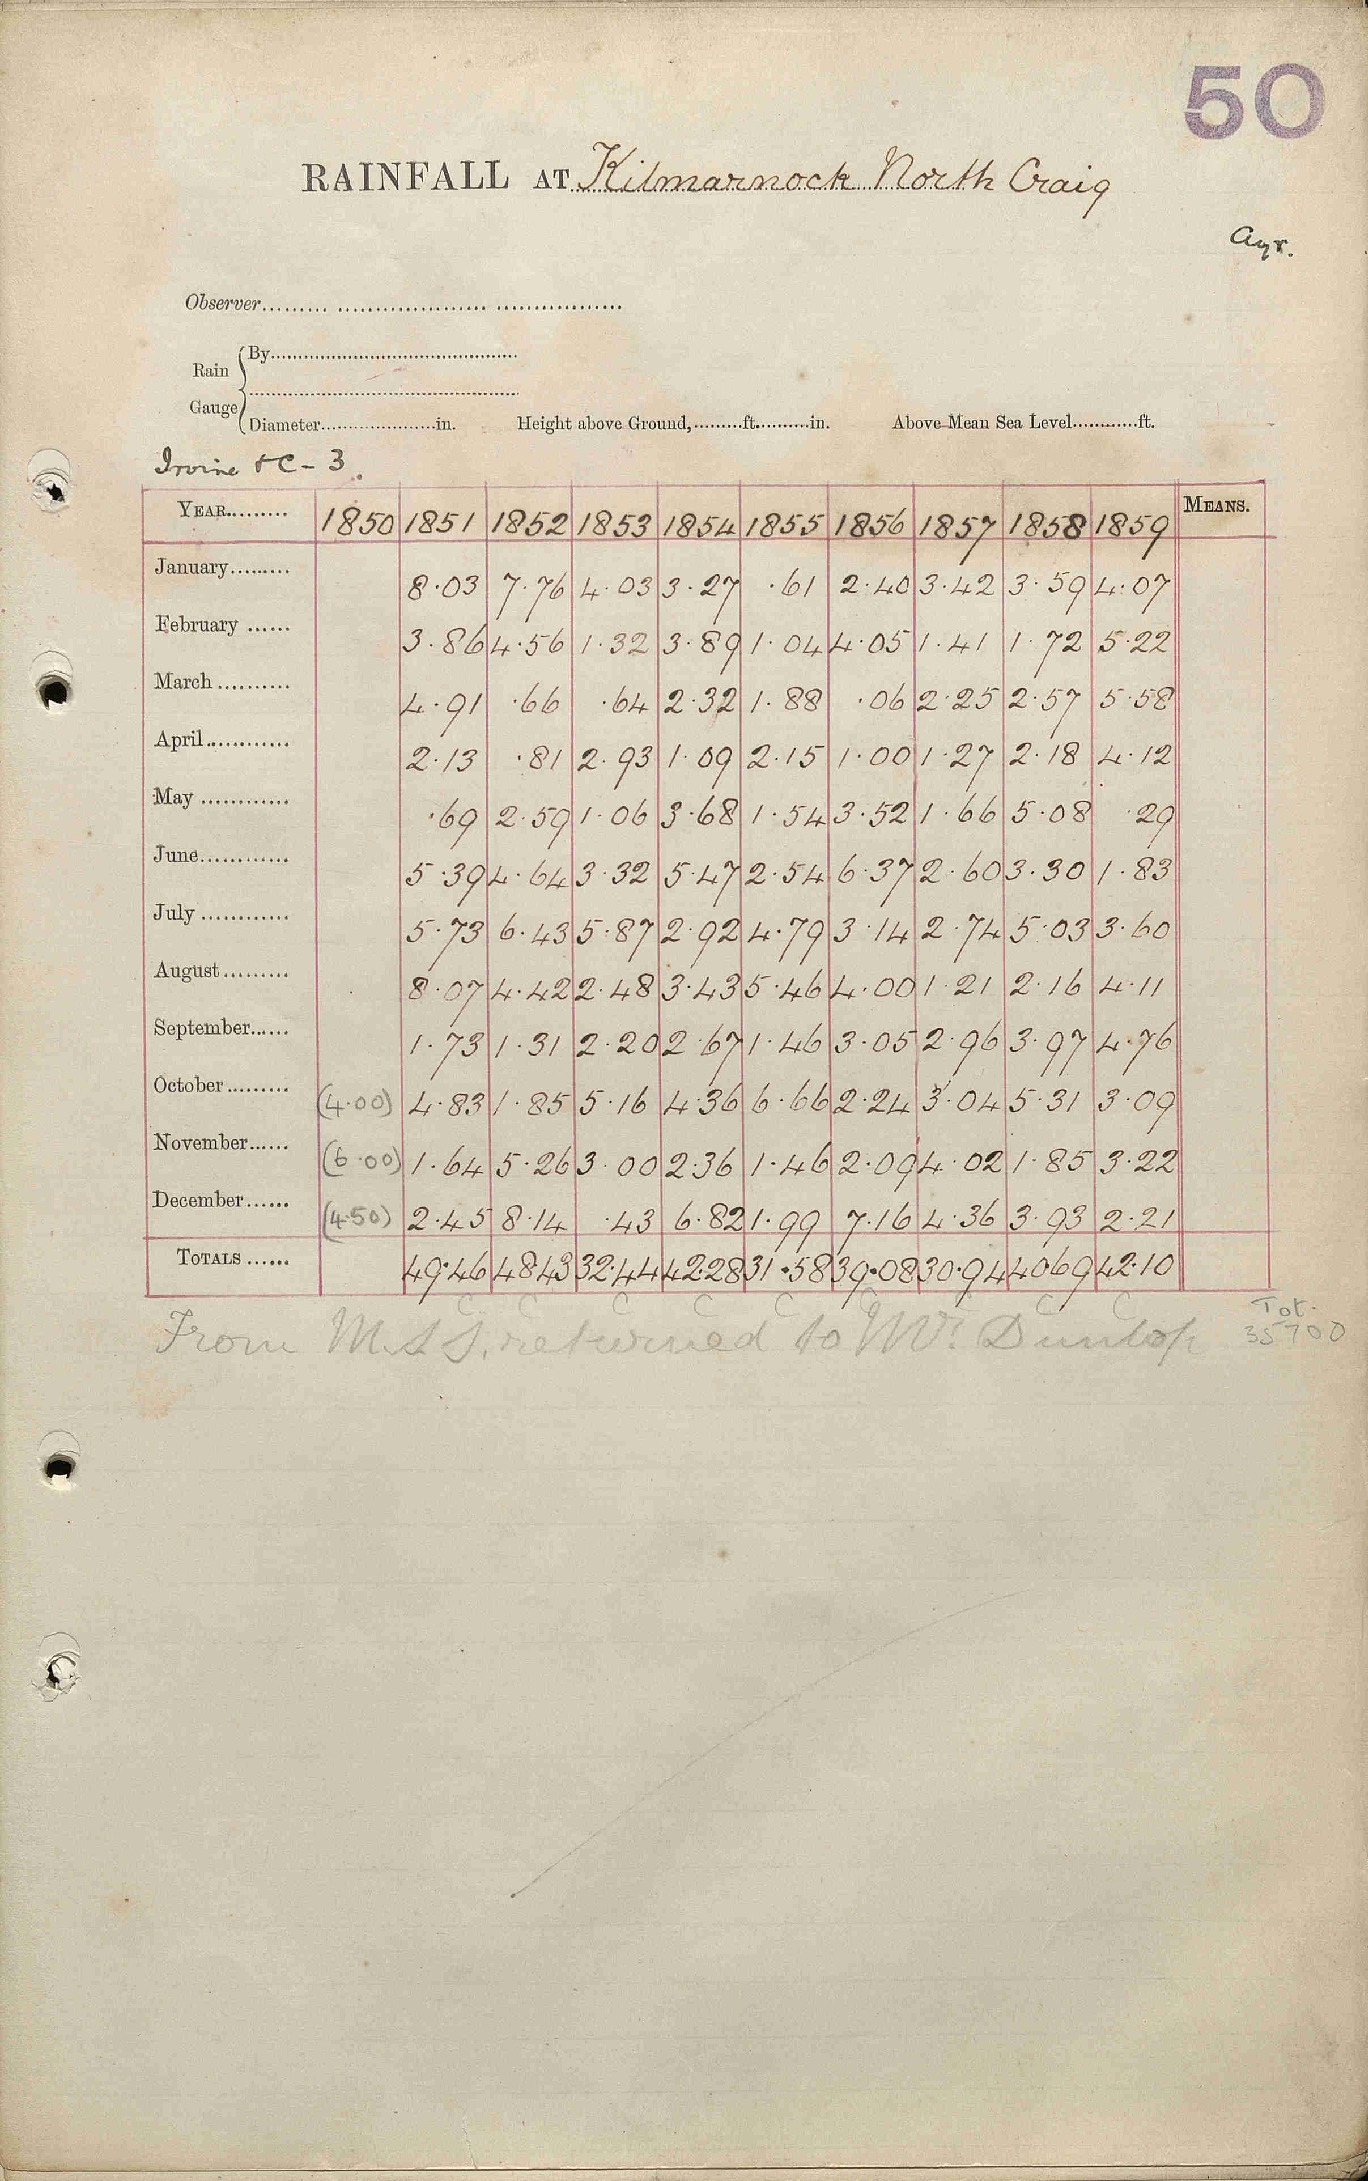 50
RAINFALL AT Kilmarnock North Craig
Ayr.
Observer
Rain Gauge { By
Diameter in. Height above Ground, ft. in. Above Mean Sea Level ft.
Irvine &C - 3.
YEAR 1850 1851 1852 1853 1854 1855 1856 1857 1858 1859 MEANS.
January 8.03 7.76 4.03 3.27 .61 2.40 3.42 3.59 4.07
February 3.86 4.56 1.32 3.89 1.04 4.05 1.41 1.72 5.22
March 4.91 .66 .64 2.32 1.88 .06 2.25 2.57 5.58
April 2.13 .81 2.93 1.09 2.15 1.00 1.27 2.18 4.12
May .69 2.59 1.06 3.68 1.54 3.52 1.66 5.08 .29
June 5.39 4.64 3.32 5.47 2.54 6.37 2.60 3.30 1.83
July 5.73 6.43 5.87 2.92 4.79 3.14 2.74 5.03 3.60
August 8.07 4.42 2.48 3.43 5.46 4.00 1.21 2.16 4.11
September 1.73 1.31 2.20 2.67 1.46 3.05 2.96 3.97 4.76
October (4.00) 4.83 1.85 5.16 4.36 6.66 2.24 3.04 5.31 3.09
November (6.00) 1.64 5.26 3.00 2.36 1.46 2.09 4.02 1.85 3.22
December (4.50) 2.45 8.14 .43 6.82 1.99 7.16 4.36 3.93 2.21
TOTALS 49.46 48.43 32.44 42.28 31.58 39.08 30.94 40.69 42.10
C C C C C C C C
From M.S.S. returned to Mr. Dunlop
Tot.
35700